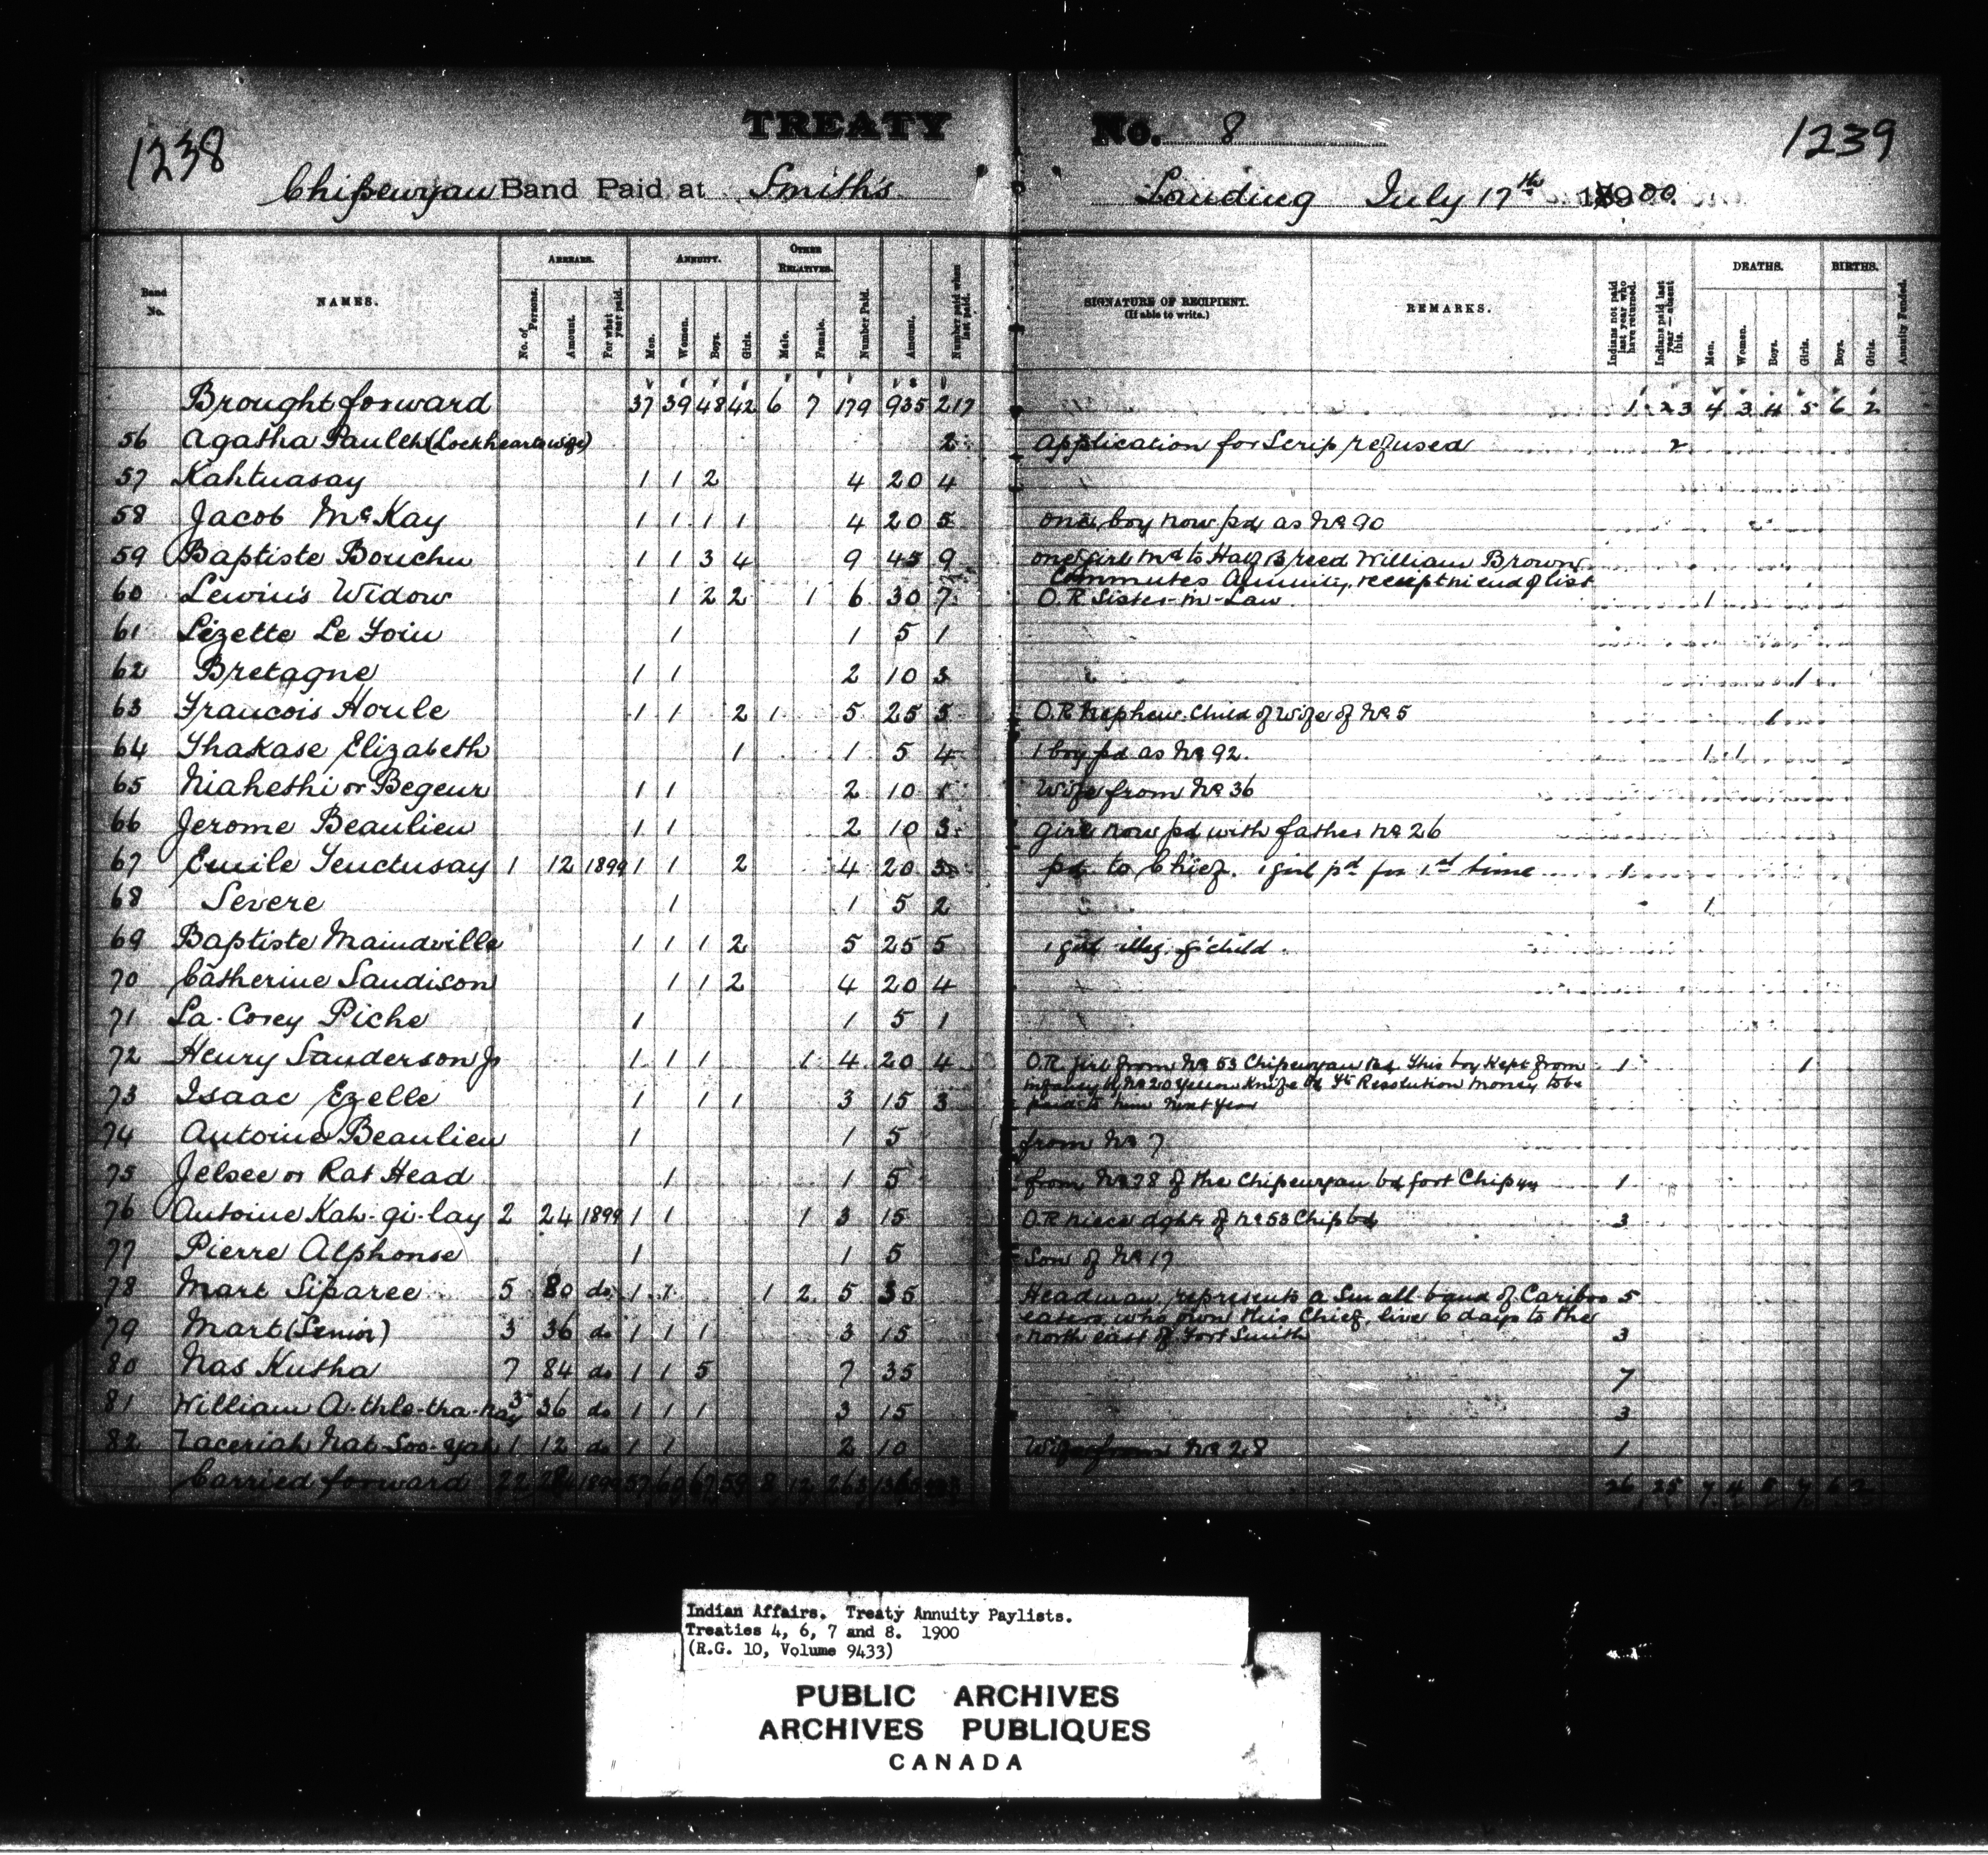 1238
TREATY No. 8
1239
Chipewyan Band Paid at Smith's Landing July 17th 1900
Band No.
NAMES.
ARREARS.
No. of Persons.
Amount.
For what year paid.
ANNUITY.
Men.
Women.
Boys.
Girls.
OTHER RELATIVES.
Male.
Female.
Number Paid.
Amount.
Number paid when last paid.
SIGNATURE OF RECIPIENT.
(If able to write.)
REMARKS.
Indians not paid last year who have returned.
Indians paid last year—absent this.
DEATHS.
Men.
Women.
Boys.
Girls.
BIRTHS.
Boys.
Girls.
Annuity Funded.
Brought forward 37 39 48 42 6 7 179 935 217 1 23 4 3 4 5 6 2
56 Agatha (Lockhearts wife) 2 Application for Scrip refused 2
57 Kahtuasay 1 1 2 4 20 4
58 Jacob McKay 1 1 1 1 4 20 5 one boy now pd as No 90
59 Baptiste Bouchu 1 1 3 4 9 45 9 one girl md to Half Breed William Brown
Commutes Annuity, receipt in end of list
60 Lewin's Widow 1 2 2 1 6 30 7 O.R Sister-in-Law 1
61 Lizette Le Foin 1 1 5 1
62 Bretagne 1 1 2 10 3 1
63 Francois Houle 1 1 2 1 5 25 5 O.R nephew. Child of Wife of No 5 1
64 Thakase Elizabeth 1 1 5 4 1 boy pd as No 92. 1 1
65 Niahethi or Begeur 1 1 2 10 1 Wife from No 36
66 Jerome Beaulieu 1 1 2 10 3 girl now pd with father No 26
67 Emile Tenctusay 1 12 1899 1 1 2 4 20 3 pd. to Chief. 1 girl pd for 1st time 1
68 Severe 1 1 5 2 1
69 Baptiste Maindville 1 1 1 2 5 25 5 1 girl illeg. g'child.
70 Catherine Sandison 1 1 2 4 20 4
71 La-Corey Piche 1 1 5 1
72 Henry Sanderson Jr 1 1 1 1 4 20 4 O.R. girl from No 53 Chipewyan Bd. This boy Kept from 1 1
infancy by No 20 Yellow Knife Bd Ft Resolution money to be
73 Isaac Ezelle 1 1 1 3 15 3 paid to him next year
74 Antoine Beaulieu 1 1 5 from No 7
75 Jelsee or Rat Head 1 1 5 from No 28 of the Chipewyan bd fort Chipyn 1
76 Antoine Kah-gi-lay 2 24 1899 1 1 1 3 15 O.R niece dghr of No 53 Chip bd 3
77 Pierre Alphonse 1 1 5 Son of No 17
78 Mart Siparee 5 80 do 1 1 1 2 5 35 Headman, represents a Small band of Cariboo 5
eaters who own this Chief, live 6 days to the
79 Mart (Senior) 3 36 do 1 1 1 3 15 north east of Fort Smith 3
80 Nas Kutha 7 84 do 1 1 5 7 35 7
81 William A-thle-tha-hay 3 36 do 1 1 1 3 15 3
82 Zaceriah Nat-Soo-yah 1 12 do 1 1 2 10 Wife from No 28 1
Carried forward 22 284 1899 57 60 67 59 8 12 263 1365 26 25 7 4 5 7 6 2
Indian Affairs. Treaty Annuity Paylists.
Treaties 4, 6, 7 and 8. 1900
(R.G. 10, Volume 9433)
PUBLIC ARCHIVES
ARCHIVES PUBLIQUES
CANADA